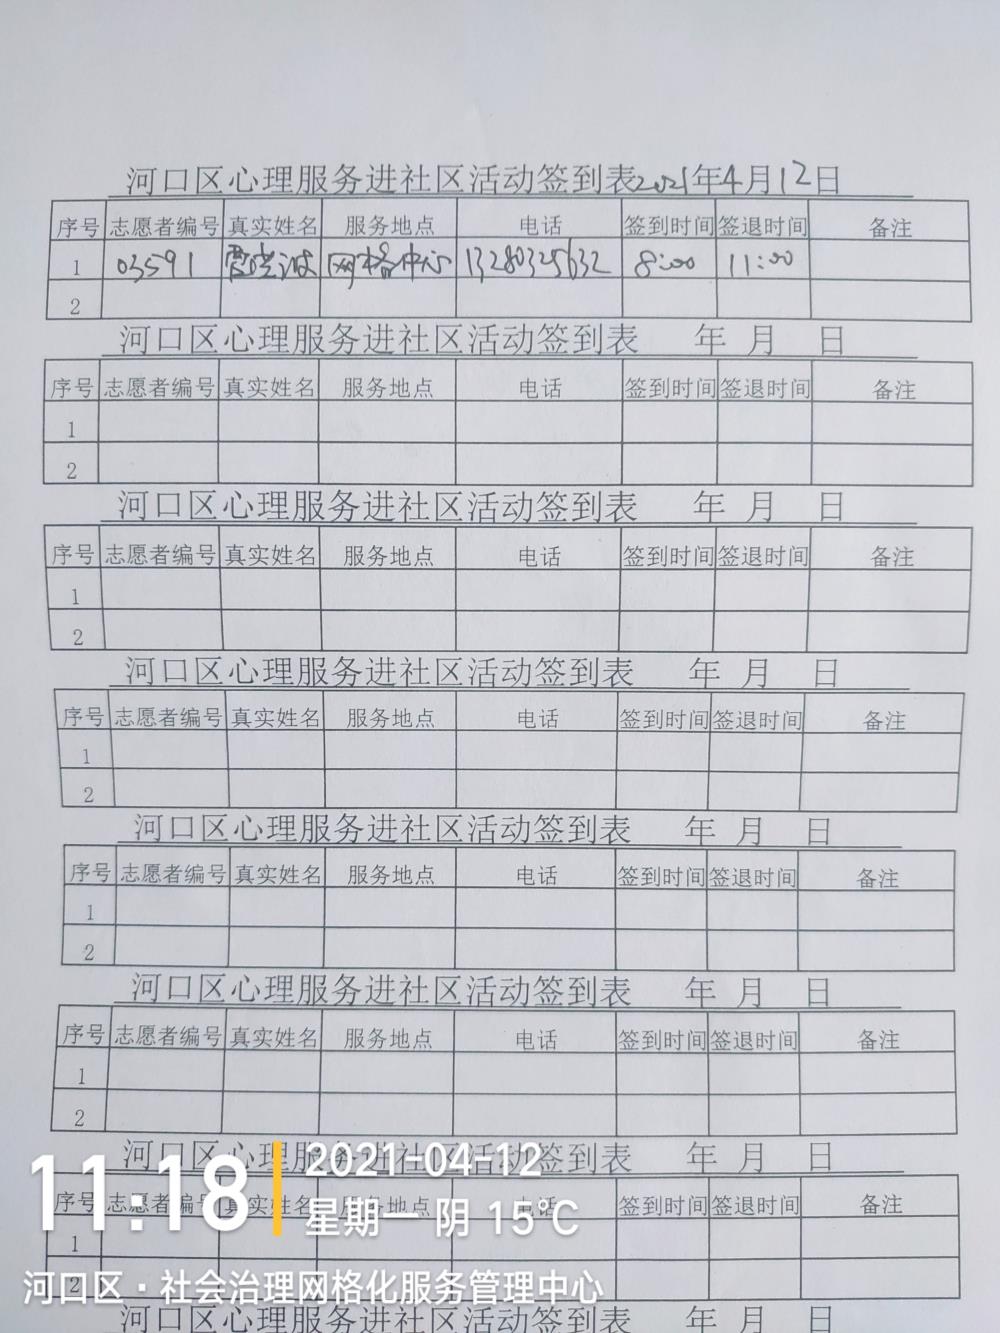 河口区心理服务进社区活动签到表2021年4月12日
序号 志愿者编号 真实姓名 服务地点 电话 签到时间 签退时间 备注
1 03591 网格中心 13280325632 8:00 11:00
2
河口区心理服务进社区活动签到表 年 月 日
序号 志愿者编号 真实姓名 服务地点 电话 签到时间 签退时间 备注
1
2
河口区心理服务进社区活动签到表 年 月 日
序号 志愿者编号 真实姓名 服务地点 电话 签到时间 签退时间 备注
1
2
河口区心理服务进社区活动签到表 年 月 日
序号 志愿者编号 真实姓名 服务地点 电话 签到时间 签退时间 备注
1
2
河口区心理服务进社区活动签到表 年 月 日
序号 志愿者编号 真实姓名 服务地点 电话 签到时间 签退时间 备注
1
2
河口区心理服务进社区活动签到表 年 月 日
序号 志愿者编号 真实姓名 服务地点 电话 签到时间 签退时间 备注
1
2
河口区心理服务进社区活动签到表 年 月 日
序号 志愿者编号 真实姓名 服务地点 电话 签到时间 签退时间 备注
1
2
河口区心理服务进社区活动签到表 年 月 日
11:18
2021-04-12
星期一 阴 15℃
河口区·社会治理网格化服务管理中心